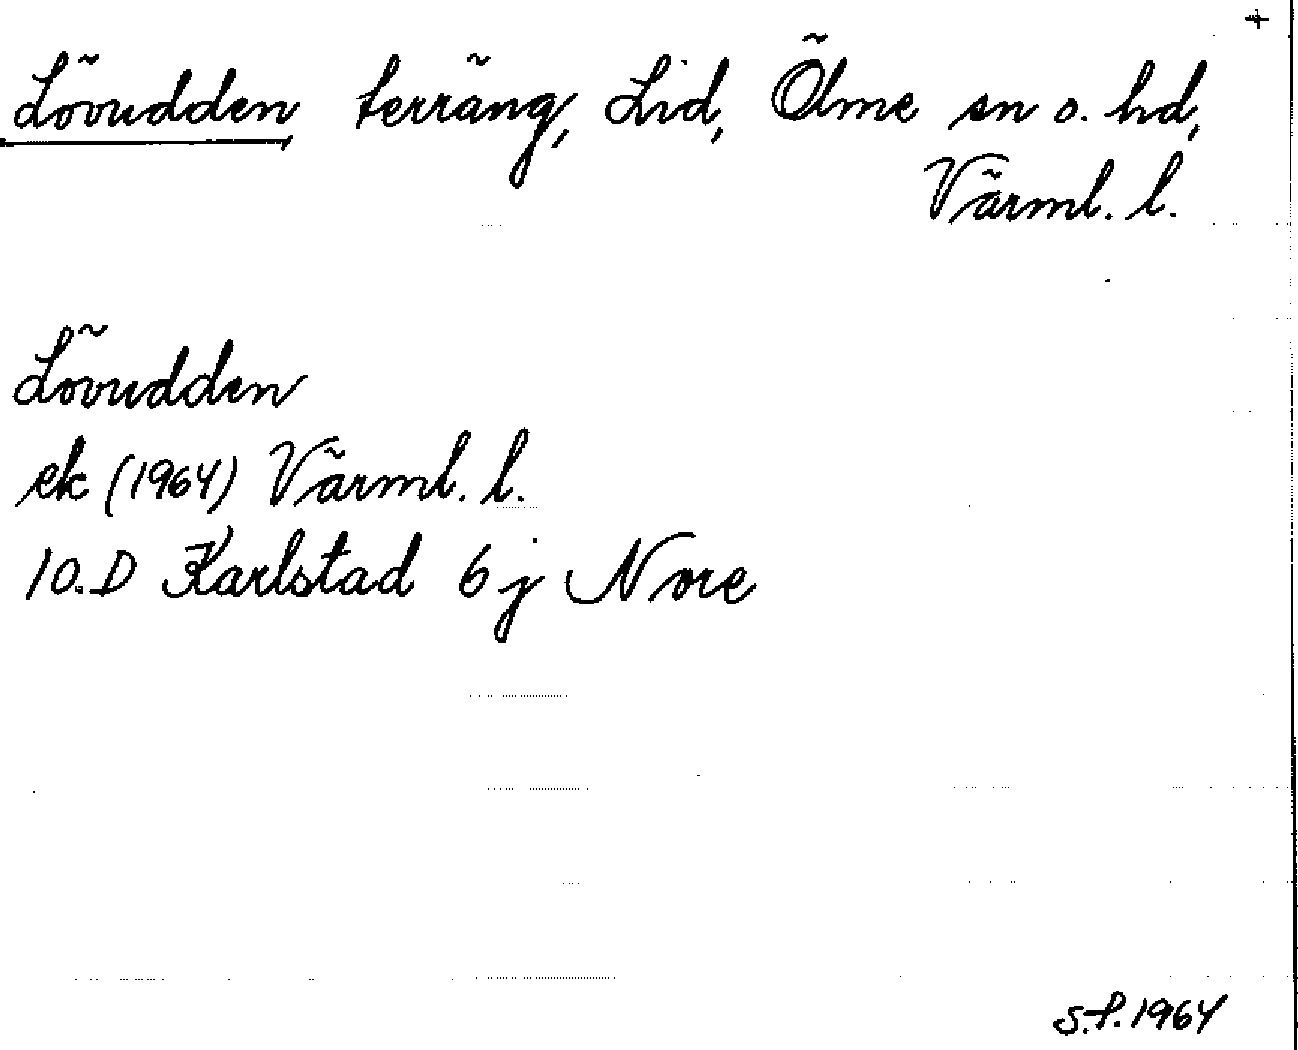 +
Lövudden, terräng, Lid, Ölme sn o. hd,
Värml. l.
Lövudden
ek (1964) Värml. l.
10.D Karlstad 6 j Nore
S.f. 1964